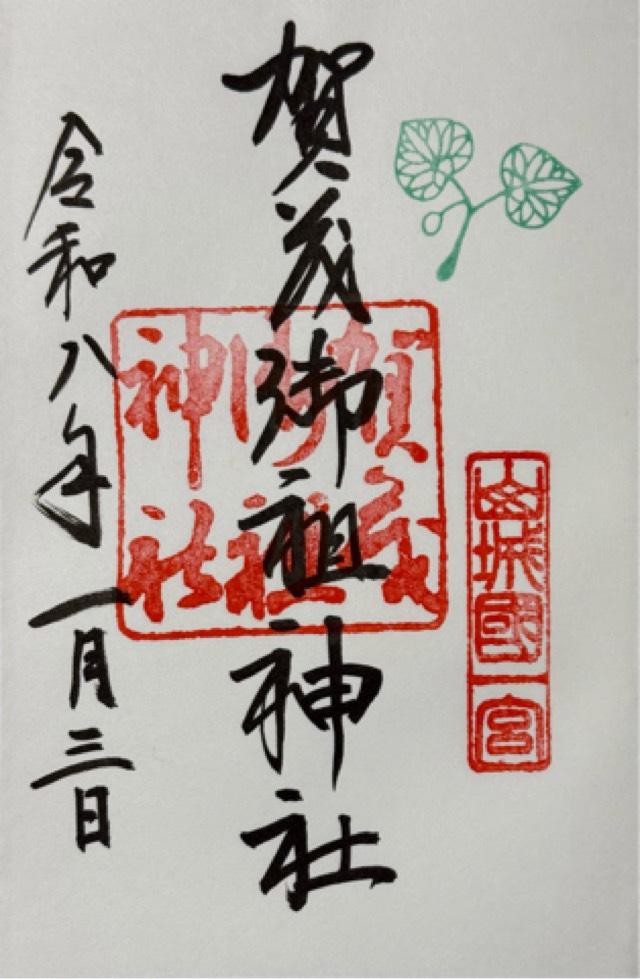 山城國一宮
賀茂御祖神社
賀茂御祖神社
令和八年一月三日